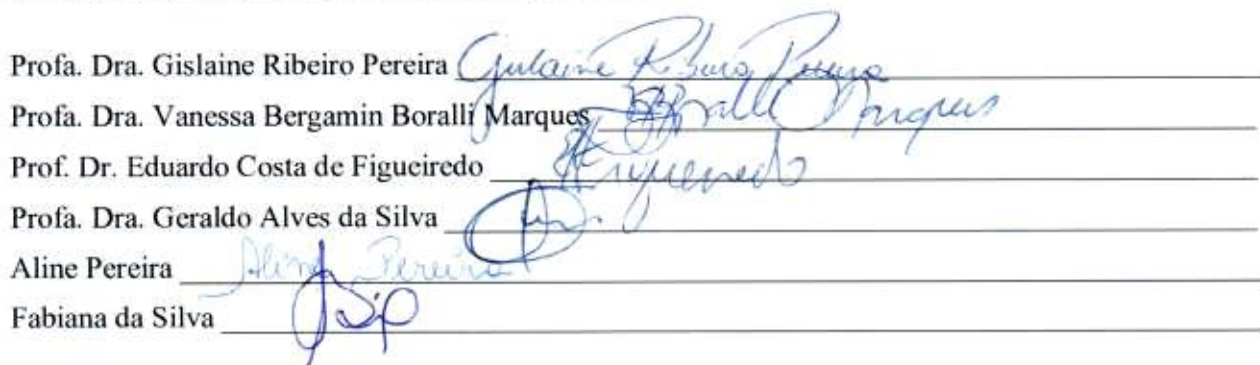 Profa. Dra. Gislaine Ribeiro Pereira Gislaine Ribeiro Pereira
Profa. Dra. Vanessa Bergamin Boralli Marques Boralli Marques
Prof. Dr. Eduardo Costa de Figueiredo Figueiredo
Profa. Dra. Geraldo Alves da Silva
Aline Pereira Aline Pereira
Fabiana da Silva